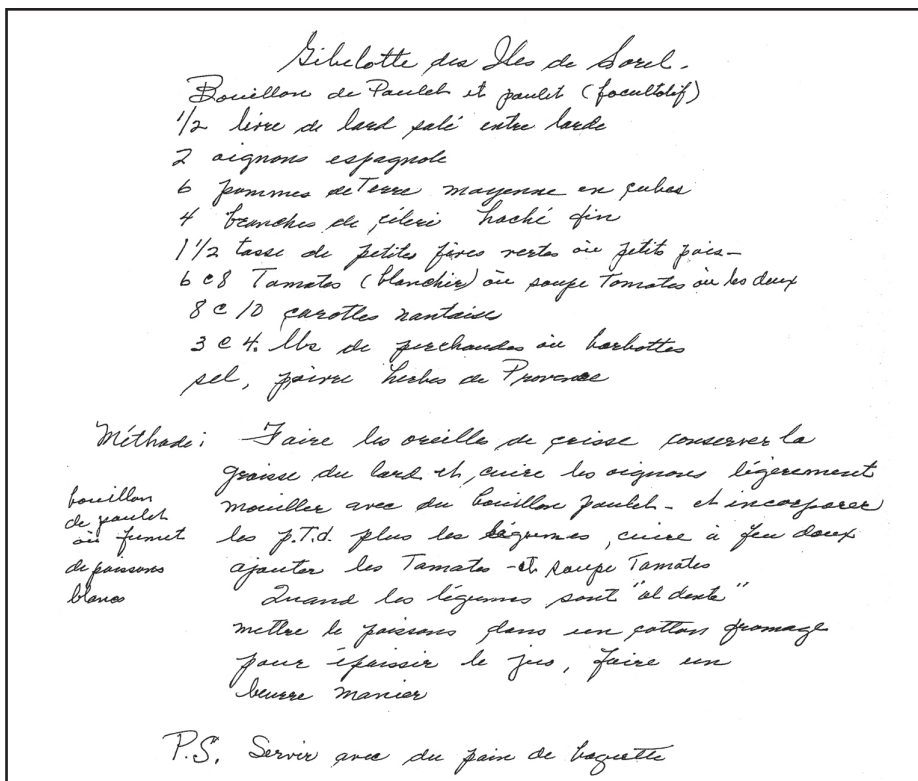 Gibelotte des Iles de Sorel.
Bouillon de Poulet et poulet (facultatif)
1/2 livre de lard salé entre larde
2 oignons espagnole
6 pommes de Terre moyenne en cubes
4 branches de céleri haché fin
1 1/2 tasse de petites fèves vertes ou petit pois-
6 @ 8 Tomates (blanchir) ou soupe Tomates ou les deux
8 @ 10 carottes nantaise
3 @ 4. lbs de perchaudes ou barbottes
sel, poivre herbes de Provence
Méthode: Faire les oreille de crisse conserver la
graisse du lard et cuire les oignons légèrement
mouiller avec du bouillon poulet - et incorporer
les p.T.d. plus les légumes, cuire à feu doux
ajouter les Tomates - et soupe Tomates
Quand les légumes sont "al dente"
mettre le poissons dans un cotton fromage
pour épaissir le jus, faire un
beurre manier
bouillon
de poulet
ou fumet
de poissons
blancs
P.S. Servir avec du pain de baguette